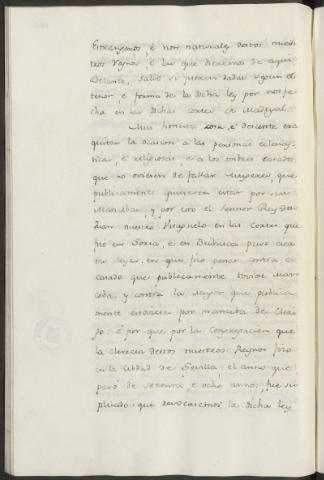 Extrangeros, é non naturales destos nuestros
tros Regnos, é las que dieremos de aqui
adelante, salvo si fueren dadas segun el
tenor, é forma de la dicha ley por nos fe-
cha en las dichas cortes de Madrigal.
Mui honesta cosa, é decente era
quitar la ocasion a las personas eclesias-
ticas, é religiosas, é a los ombres casados
que no oviesen de fallar mugeres, que
publicamente quisiesen estar por sus
Mancebas, y por esto el señor Rey Don
Juan nuestro Visagüelo en las Cortes que
fizo en Soria, é en Briviesca puso cier-
tas leyes, en que fizo penar contra el
casado que publicamente toviese Man-
ceba, y contra la Muger que publica-
mente estoviese por manceba de Cleri-
go: E por que por la Congregacion que
la clerecia destos nuestros Reynos fizo
en la Cibdad de Sevilla el año que
pasó de setenta, é ocho años, fue su-
plicado: que revocasemos la dicha ley